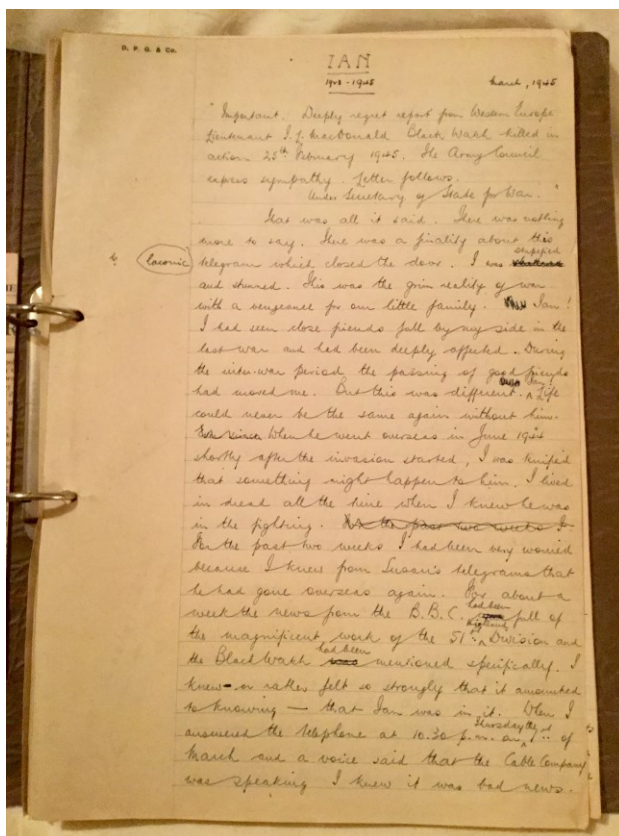 D. P. G. & Co.
IAN
1923-1945
March, 1945
"Important. Deeply regret report from Western Europe
Lieutenant I. L. MacDonald Black Watch killed in
action 25th February 1945. The Army Council
express sympathy. Letter follows.
Under Secretary of State for War."
That was all it said. There was nothing
more to say. There was a finality about this
laconic telegram which closed the door. I was stupefied
and stunned. This was the grim reality of war
with a vengeance for our little family. Ian!
I had seen close friends fall by my side in the
last war and had been deeply affected. During
the inter-war period the passing of good friends
had moved me. But this was different. Life
could never be the same again without him.
When he went overseas in June 1944
shortly after the invasion started, I was knifed
that something might happen to him. I lived
in dread all the time when I knew he was
in the fighting. For the past two weeks I
For the past two weeks I had been very worried
because I knew from Susan's telegrams that
he had gone overseas again. For about a
week the news from the B.B.C. had been full of
the magnificent work of the 51st Highland Division and
the Black Watch had been mentioned specifically. I
knew - or rather felt so strongly that it amounted
to knowing — that Ian was in it. When I
answered the telephone at 10.30 p.m. on Thursday the 1st of
March and a voice said that the Cable Company
was speaking I knew it was bad news.